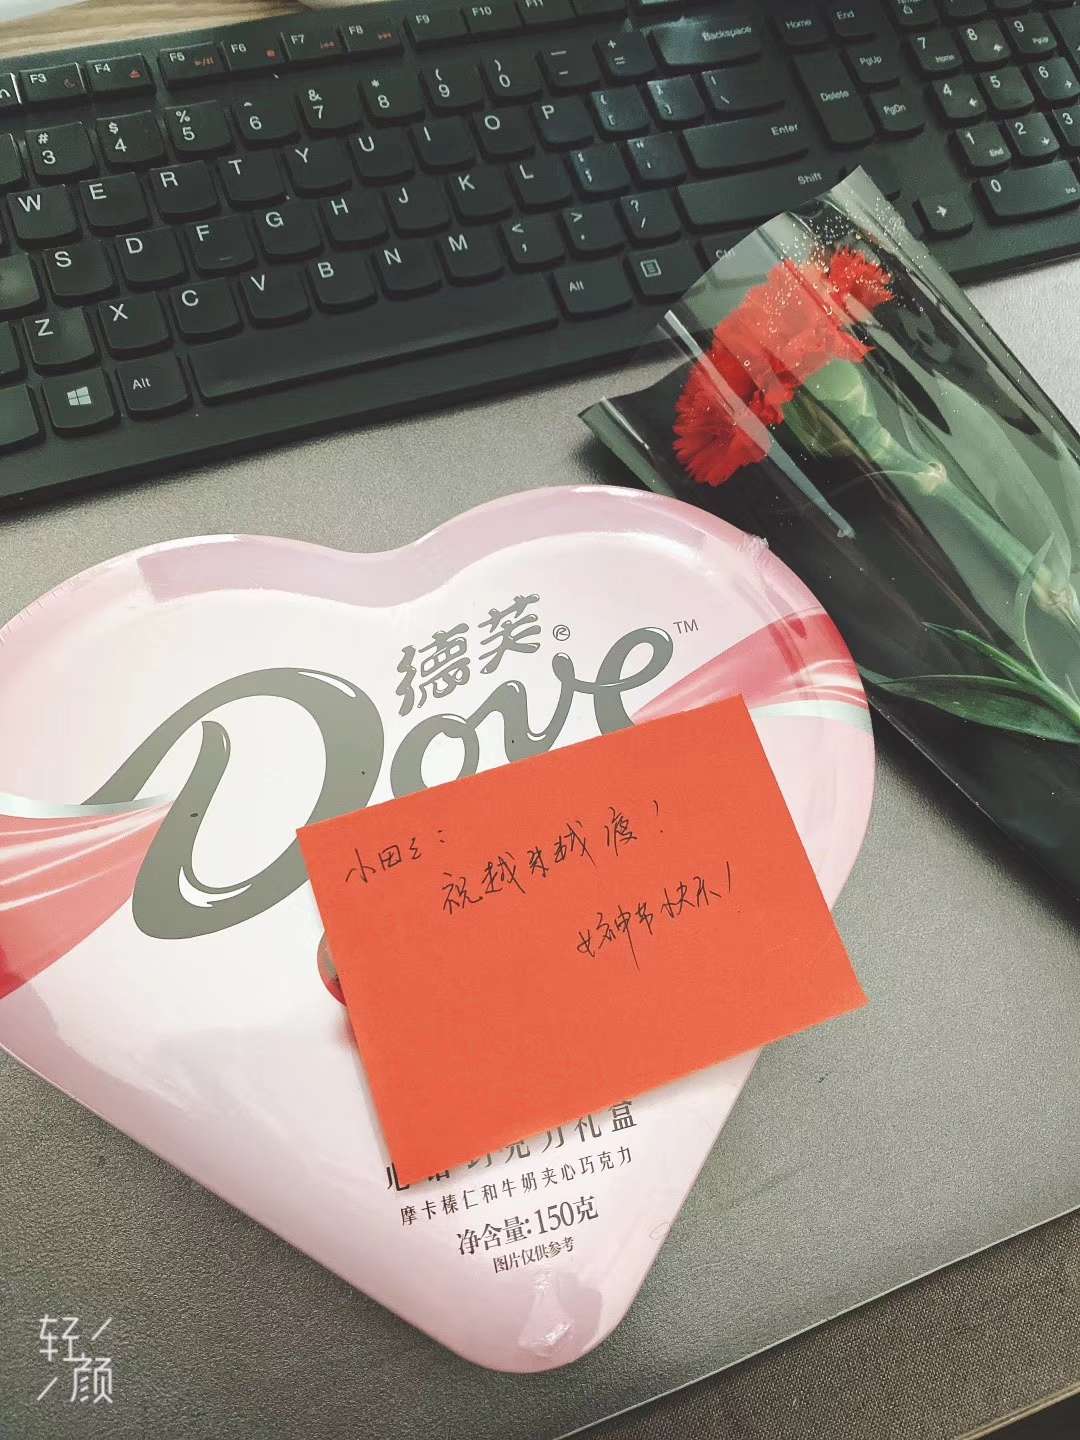 F3
F4
F5
F6
F7
F8
F9
F10
F11
Backspace
Home
End
# 3
$ 4
% 5
^ 6
& 7
* 8
( 9
) 0
— -
+ =
Delete
PgUp
PgDn
7 Home
8
9 PgUp
W
E
R
T
Y
U
I
O
P
{ [
} ]
| \
4
5
6
S
D
F
G
H
J
K
L
: ;
" '
Enter
1 End
2
3
Z
X
C
V
B
N
M
< ,
> .
? /
Shift
0 Ins
Alt
Alt
Ctrl
德芙®
Dove™
小田
祝越来越瘦！
女神节快乐！
巧克力礼盒
摩卡榛仁和牛奶夹心巧克力
净含量:150克
图片仅供参考
轻颜